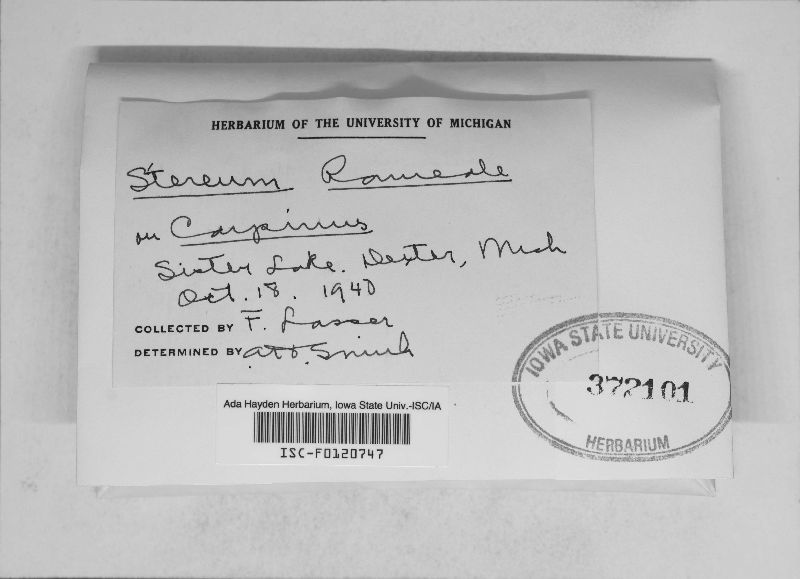 HERBARIUM OF THE UNIVERSITY OF MICHIGAN
Stereum Rameale
on Carpinus
Sister Lake. Dexter, Mich
Oct. 18. 1940
COLLECTED BY F. Lasser
DETERMINED BY A.H. Smith
IOWA STATE UNIVERSITY
372101
HERBARIUM
Ada Hayden Herbarium, Iowa State Univ.-ISC/IA
ISC-F0120747